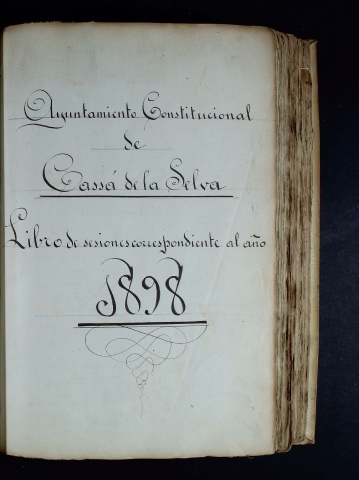 Ayuntamiento Constitucional
de
Cassá de la Selva
Libro de sesiones correspondiente al año
1898